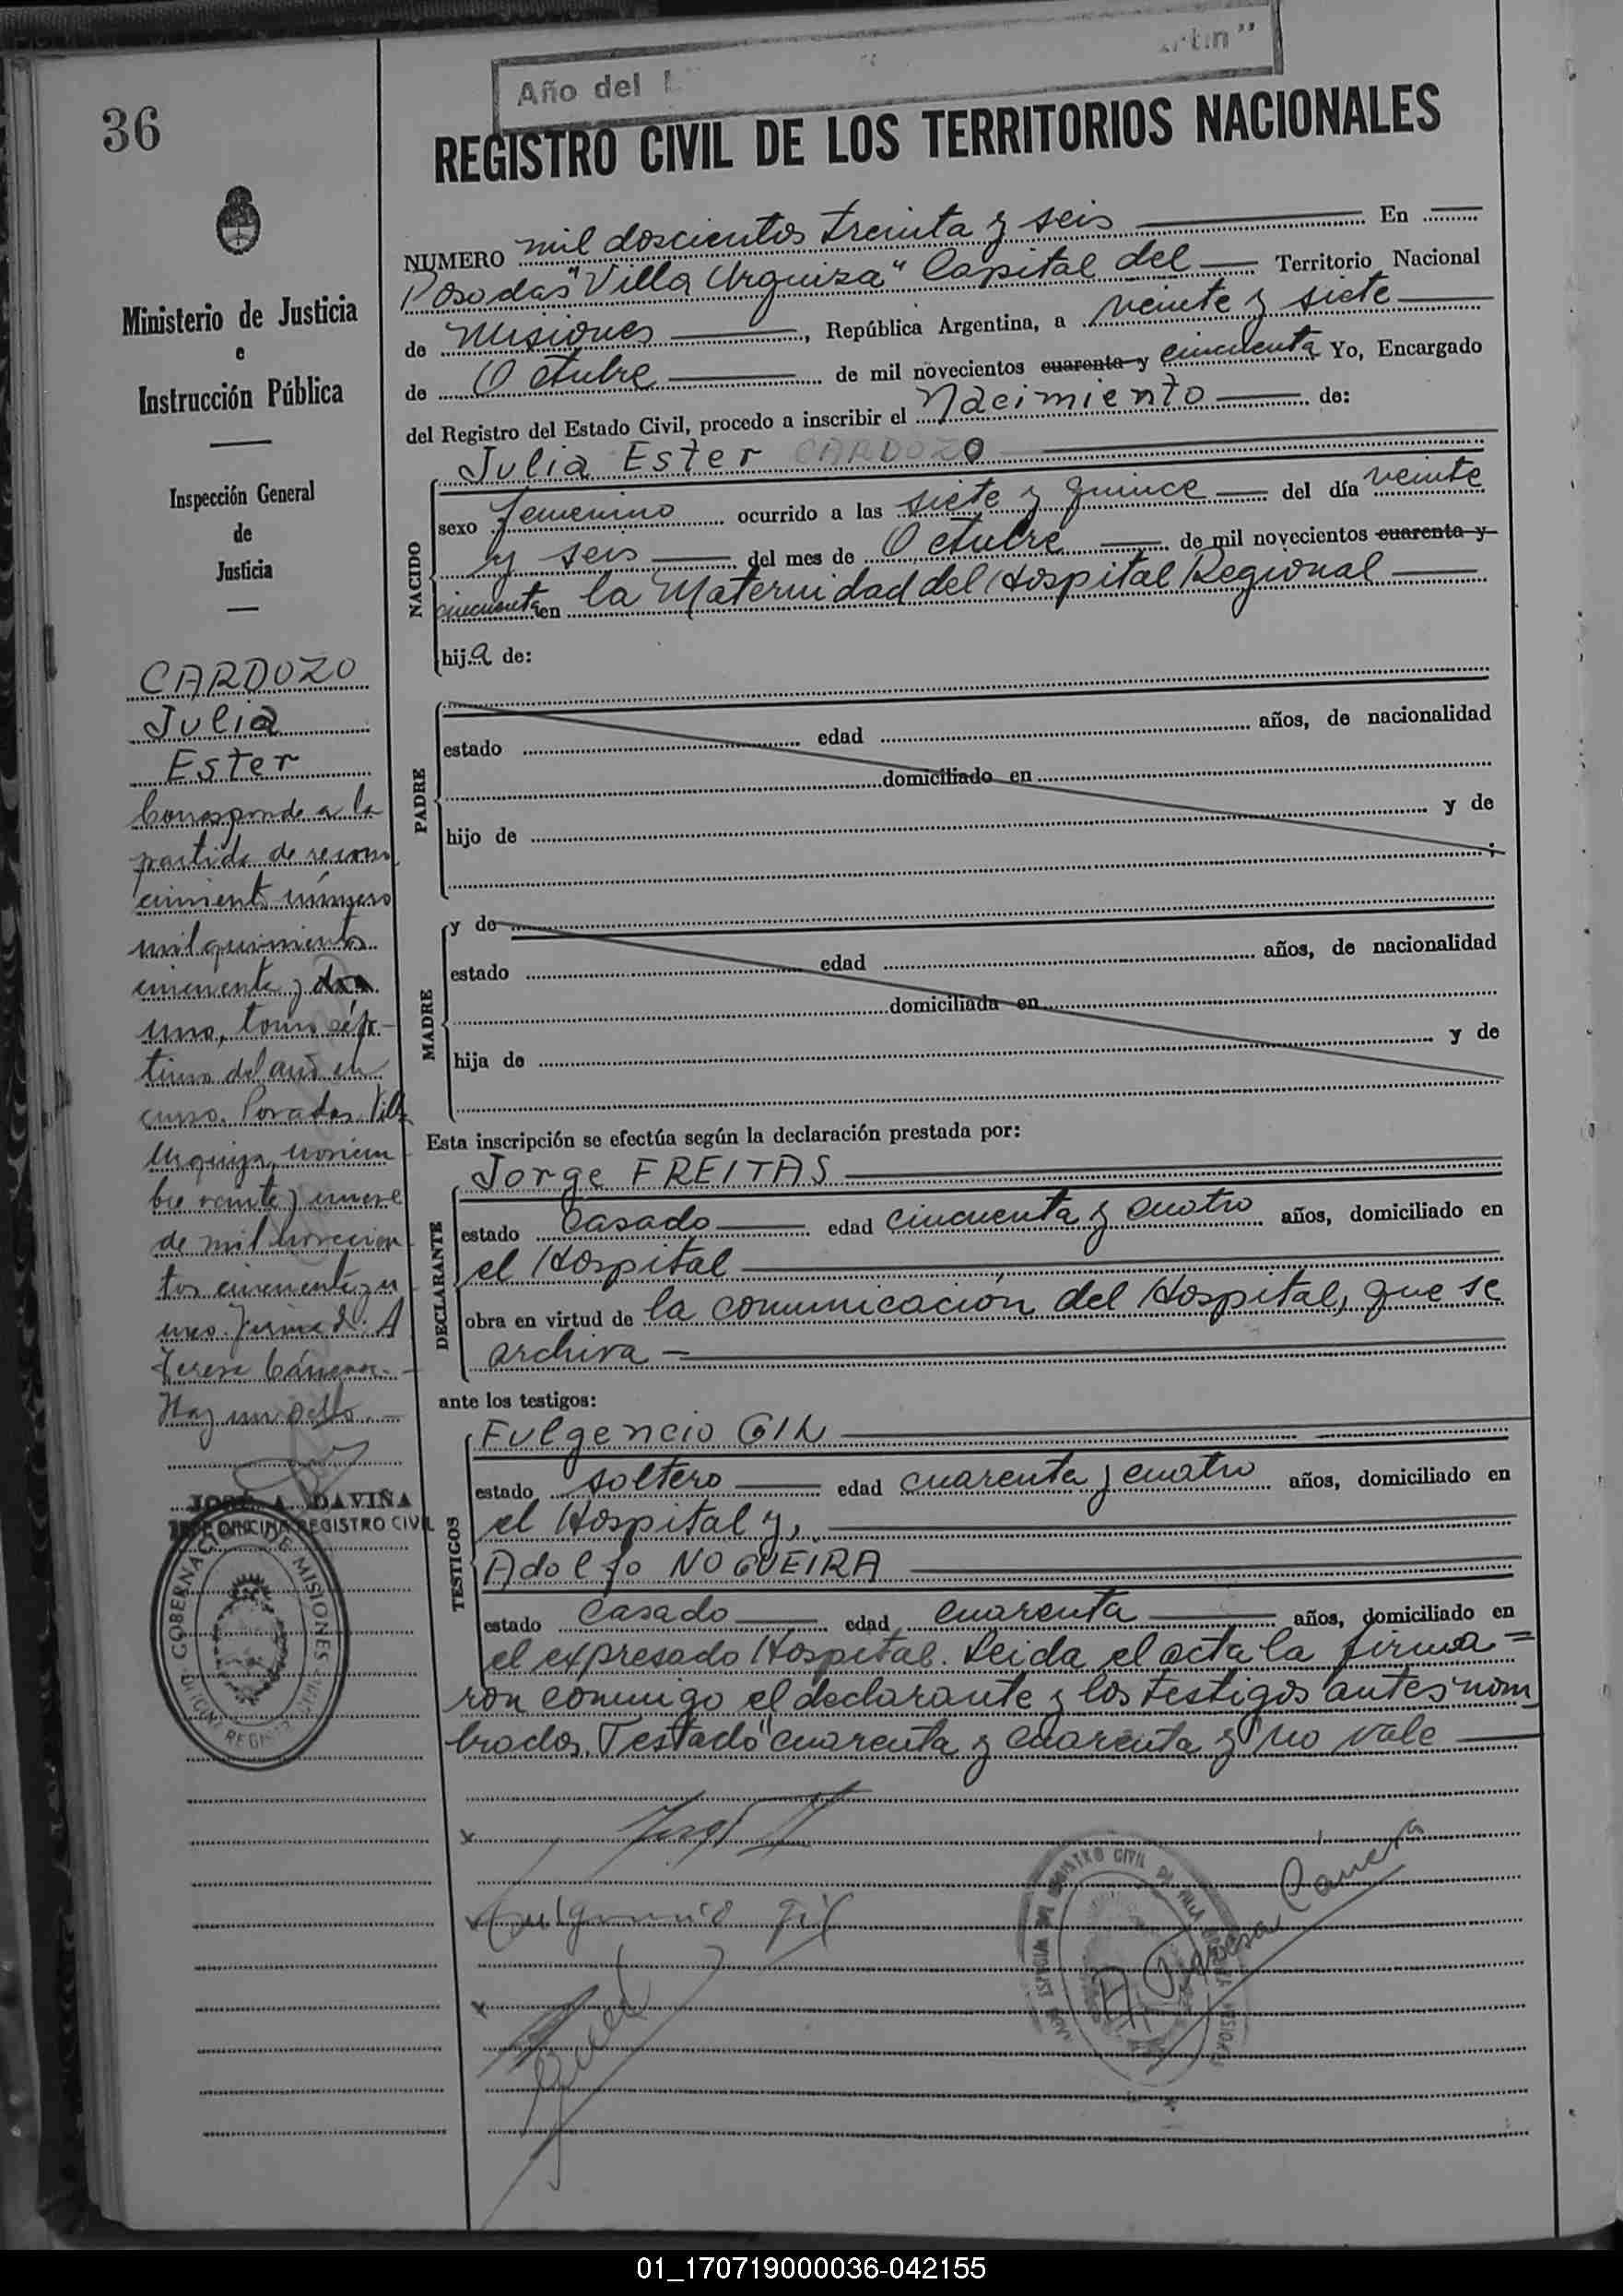 36
Año del L rtin"
REGISTRO CIVIL DE LOS TERRITORIOS NACIONALES
Ministerio de Justicia
e
Instrucción Pública
Inspección General
de
Justicia
CARDOZO
Julia
Ester
Corresponde a la
partida de recono
cimiento número
mil quinientos
cincuenta y
uno, tomo sép-
timo del año en
curso. Posadas. Villa
Urquiza, noviem
bre veinte y nueve
de mil novecien
tos cincuenta
Firmado: A
Teresa Cánera.
Hay un sello.
JOSE A. DAVIÑA
JEFE OFICINA REGISTRO CIVIL
GOBERNACION DE MISIONES
OFICINA REGISTRO CIVIL
NUMERO mil doscientos treinta y seis En
Posadas "Villa Urquiza" Capital del Territorio Nacional
de Misiones, República Argentina, a veinte y siete
de Octubre de mil novecientos cuarenta y cincuenta Yo, Encargado
del Registro del Estado Civil, procedo a inscribir el Nacimiento de:
NACIDO
Julia Ester CARDOZO
sexo femenino ocurrido a las siete y quince del día veinte
y seis del mes de Octubre de mil novecientos cuarenta y
cincuenta en la Maternidad del Hospital Regional
hija de:
PADRE
estado edad años, de nacionalidad
domiciliado en
hijo de y de
;
MADRE
y de
estado edad años, de nacionalidad
domiciliada en
hija de y de
Esta inscripción se efectúa según la declaración prestada por:
DECLARANTE
Jorge FREITAS
estado Casado edad cincuenta y cuatro años, domiciliado en
el Hospital
obra en virtud de la comunicación del Hospital, que se
archiva
ante los testigos:
TESTIGOS
Fulgencio GIL
estado soltero edad cuarenta y cuatro años, domiciliado en
el Hospital y,
Adolfo NOGUEIRA
estado Casado edad cuarenta años, domiciliado en
el expresado Hospital. Leida el acta la firma=
ron conmigo el declarante y los testigos antes nom
brados. Testado "cuarenta y cuarenta y" no vale
Fulgencio Gil
A Teresa Cánera
REGISTRO CIVIL DE VILLA
01_170719000036-042155